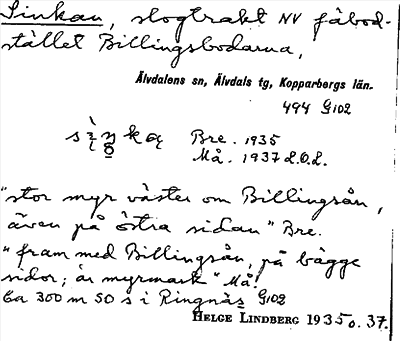 Sinkan, slogtrakt NV fäbod-
stället Billingsbodarna,
Älvdalens sn, Älvdals tg, Kopparbergs län.
494 G102
Bre. 1935
Må. 1937 L.O.L.
"stor myr väster om Billingsån,
även på östra sidan" Bre.
"fram med Billingsån, på bägge
sidor; är myrmark" Må.
Ca 300 m SO s i Ringnäs G102
HELGE LINDBERG 1935 o. 37.